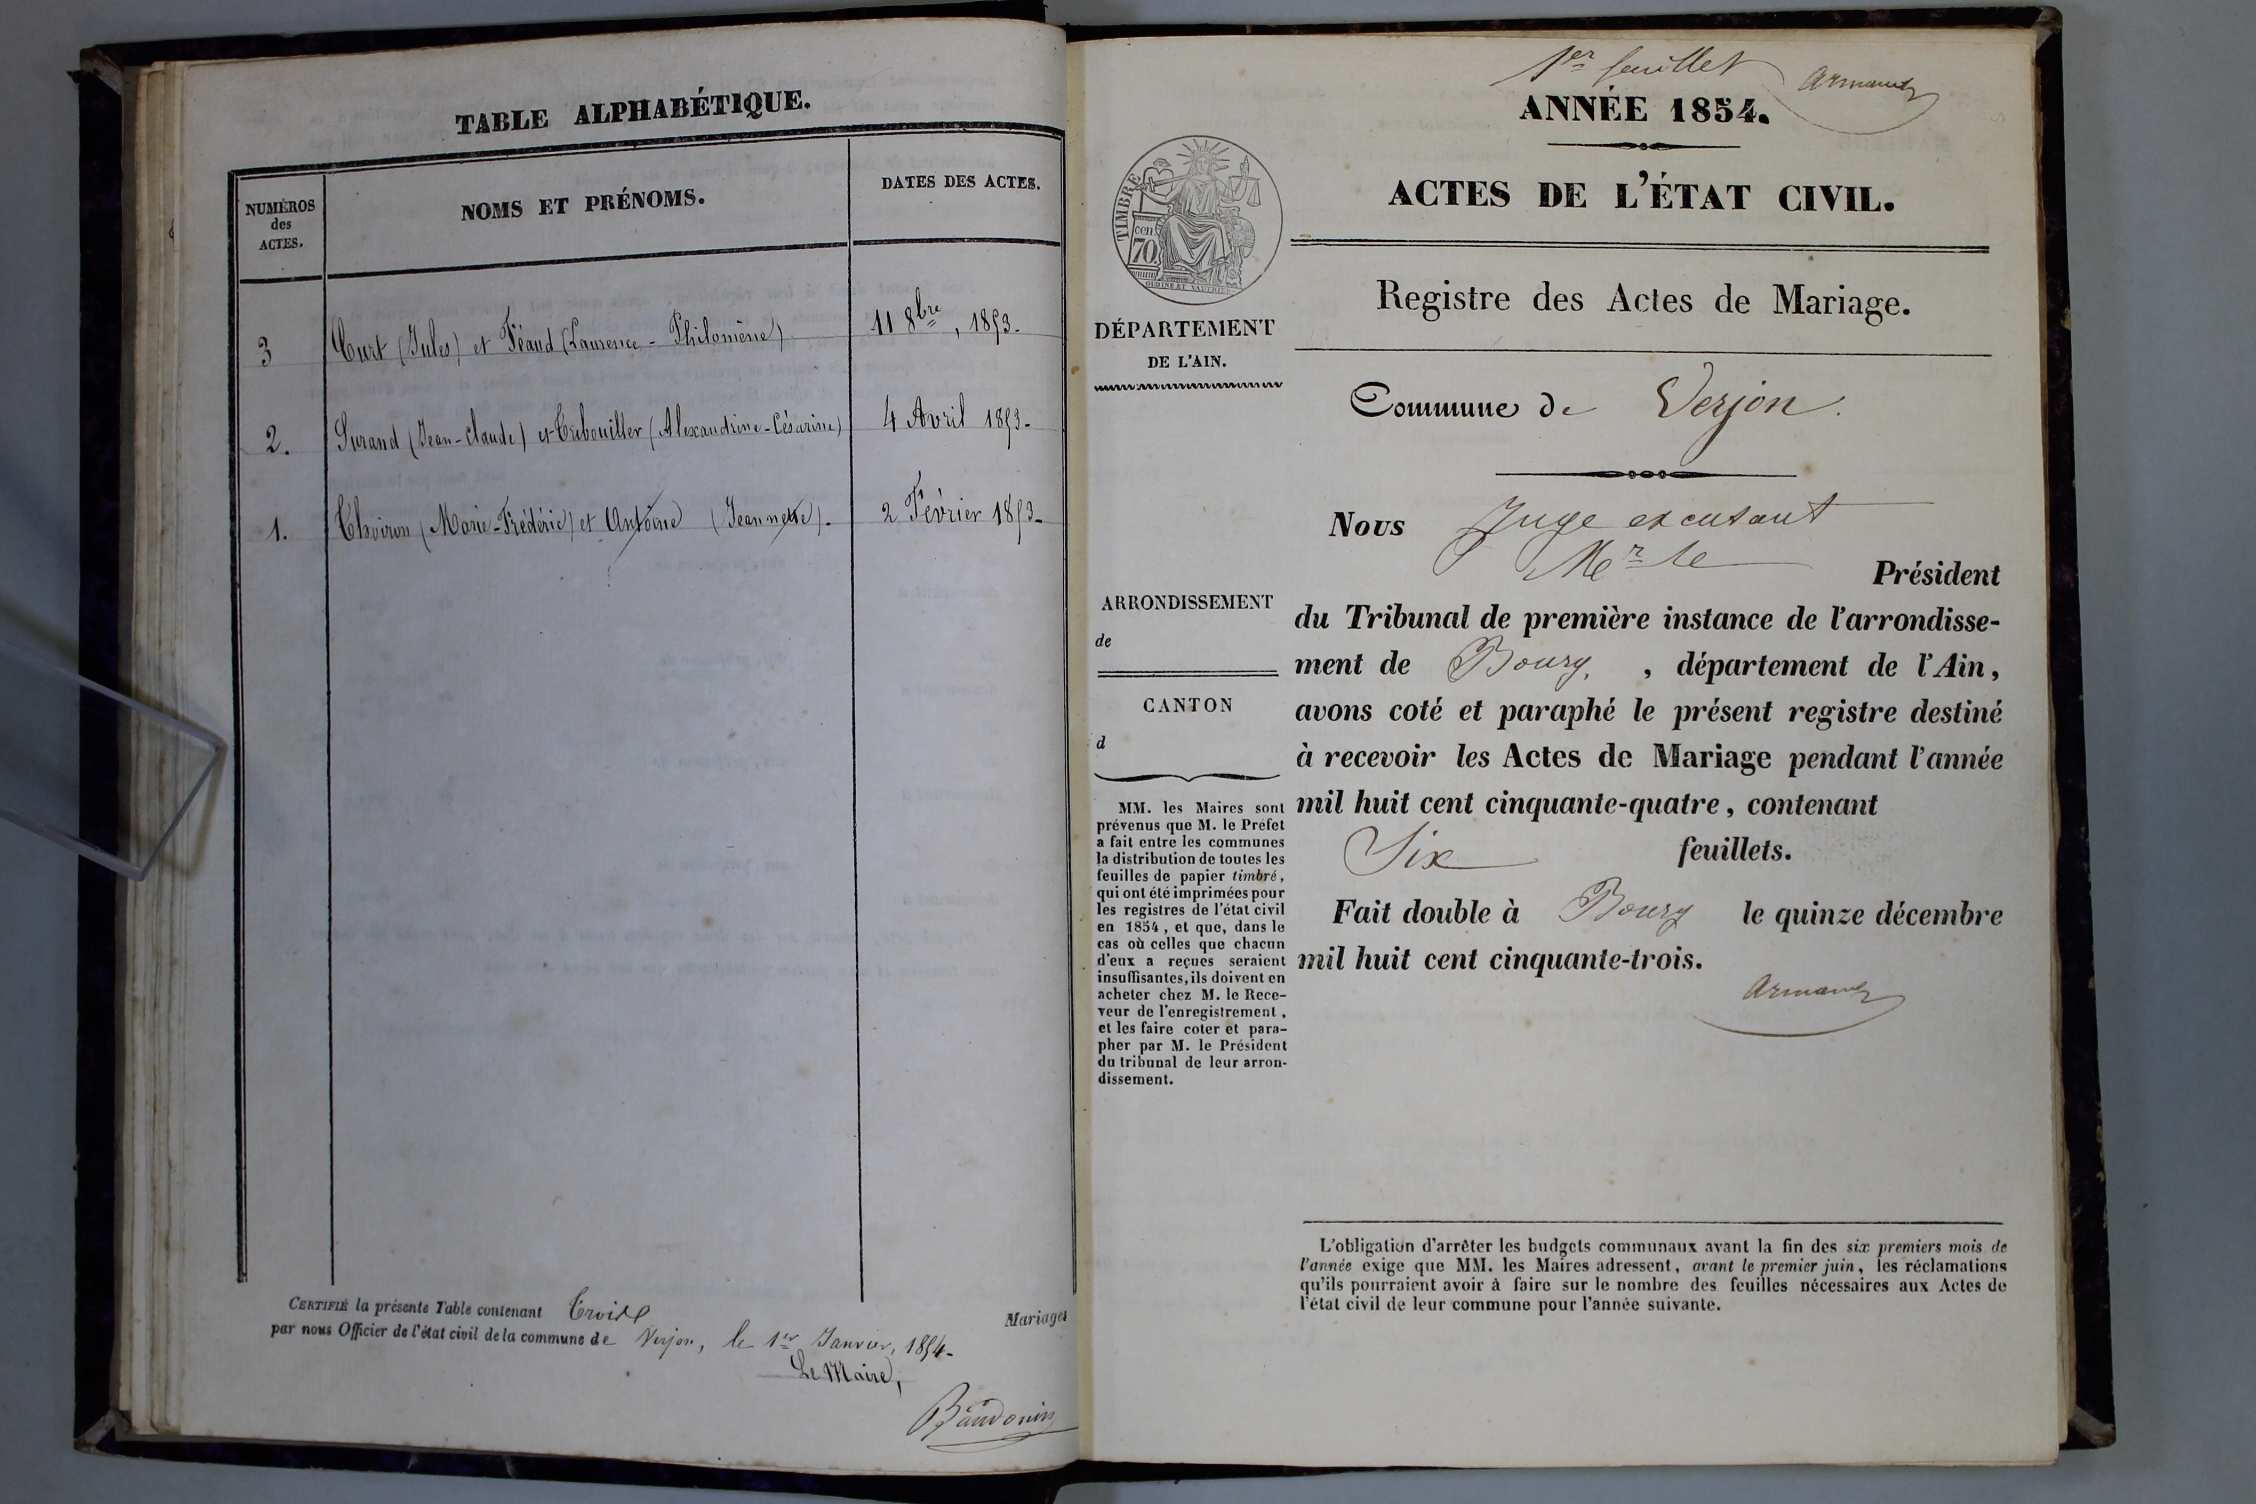 TABLE ALPHABÉTIQUE.
NUMÉROS
des
ACTES.
NOMS ET PRÉNOMS.
DATES DES ACTES.
3 Curt (Jules) et Féaud (Laurence-Philomène) 11 8bre, 1853.
2. Surand (Jean-Claude) et Trebouiller (Alexandrine-Césarine) 4 Avril 1853.
1. (Marie-Frédéric) et Antoine (Jeannette). 2 Février 1853.
CERTIFIÉ la présente Table contenant Trois Mariages
par nous Officier de l'état civil de la commune de Verjon, le 1er Janvier, 1854.
Le Maire,
Baudouin
1er feuillet Armand
ANNÉE 1854.
ACTES DE L'ÉTAT CIVIL.
Registre des Actes de Mariage.
Commune de Verjon.
TIMBRE
cen
70
OUDINÉ ET
DÉPARTEMENT
DE L'AIN.
ARRONDISSEMENT
de
CANTON
d
MM. les Maires sont
prévenus que M. le Préfet
a fait entre les communes
la distribution de toutes les
feuilles de papier timbré,
qui ont été imprimées pour
les registres de l'état civil
en 1854, et que, dans le
cas où celles que chacun
d'eux a reçues seraient
insuffisantes, ils doivent en
acheter chez M. le Rece-
veur de l'enregistrement,
et les faire coter et para-
pher par M. le Président
du tribunal de leur arron-
dissement.
Nous Juge excusant
Mr le Président
du Tribunal de première instance de l'arrondisse-
ment de Bourg, , département de l'Ain,
avons coté et paraphé le présent registre destiné
à recevoir les Actes de Mariage pendant l'année
mil huit cent cinquante-quatre, contenant
Six feuillets.
Fait double à Bourg le quinze décembre
mil huit cent cinquante-trois.
Armand
L'obligation d'arrêter les budgets communaux avant la fin des six premiers mois de
l'année exige que MM. les Maires adressent, avant le premier juin, les réclamations
qu'ils pourraient avoir à faire sur le nombre des feuilles nécessaires aux Actes de
l'état civil de leur commune pour l'année suivante.